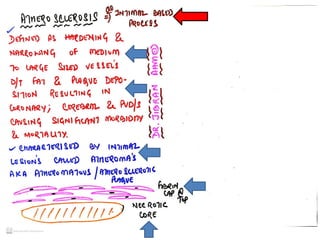 ATHEROSCLEROSIS
INTIMAL BASED
PROCESS
✓ DEFINED AS HARDENING &
NARROWING OF MEDIUM
TO LARGE SIZED VESSEL'S
D/T FAT & PLAQUE DEPO-
SITION RESULTING IN
CORONARY; CEREBRAL & PVD/S
CAUSING SIGNIFICANT MORBIDITY
& MORTALITY.
✓ CHARACTERISED BY INTIMAL
LESION'S CALLED ATHEROMA'S
AKA ATHEROMATOUS/ATHEROSCLEROTIC
PLAQUE
DR. JIBRAN AHMED
FIBRIN
CAP @
TOP
NECROTIC
CORE